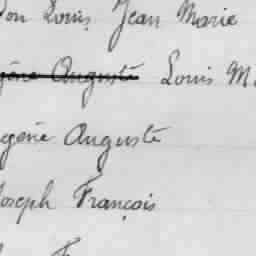 Louis Jean Marie
Auguste Louis M
Auguste
Joseph François